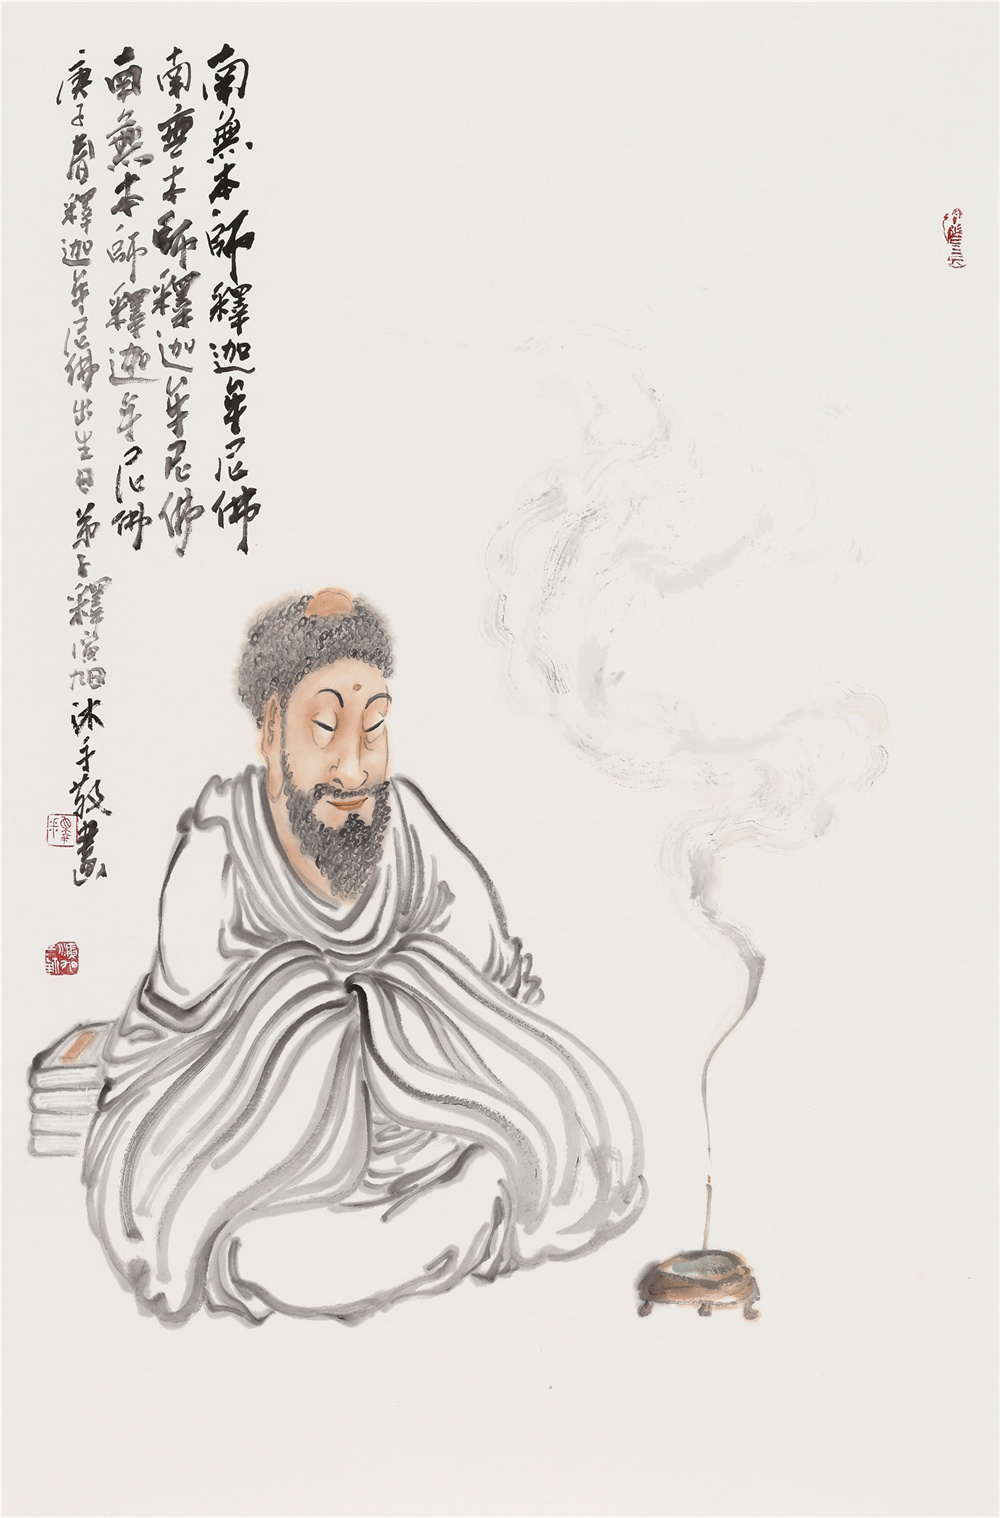 南無本師釋迦牟尼佛
南無本師釋迦牟尼佛
南無本師釋迦牟尼佛
庚子春釋迦牟尼佛出生日弟子釋演旭沐手敬畫